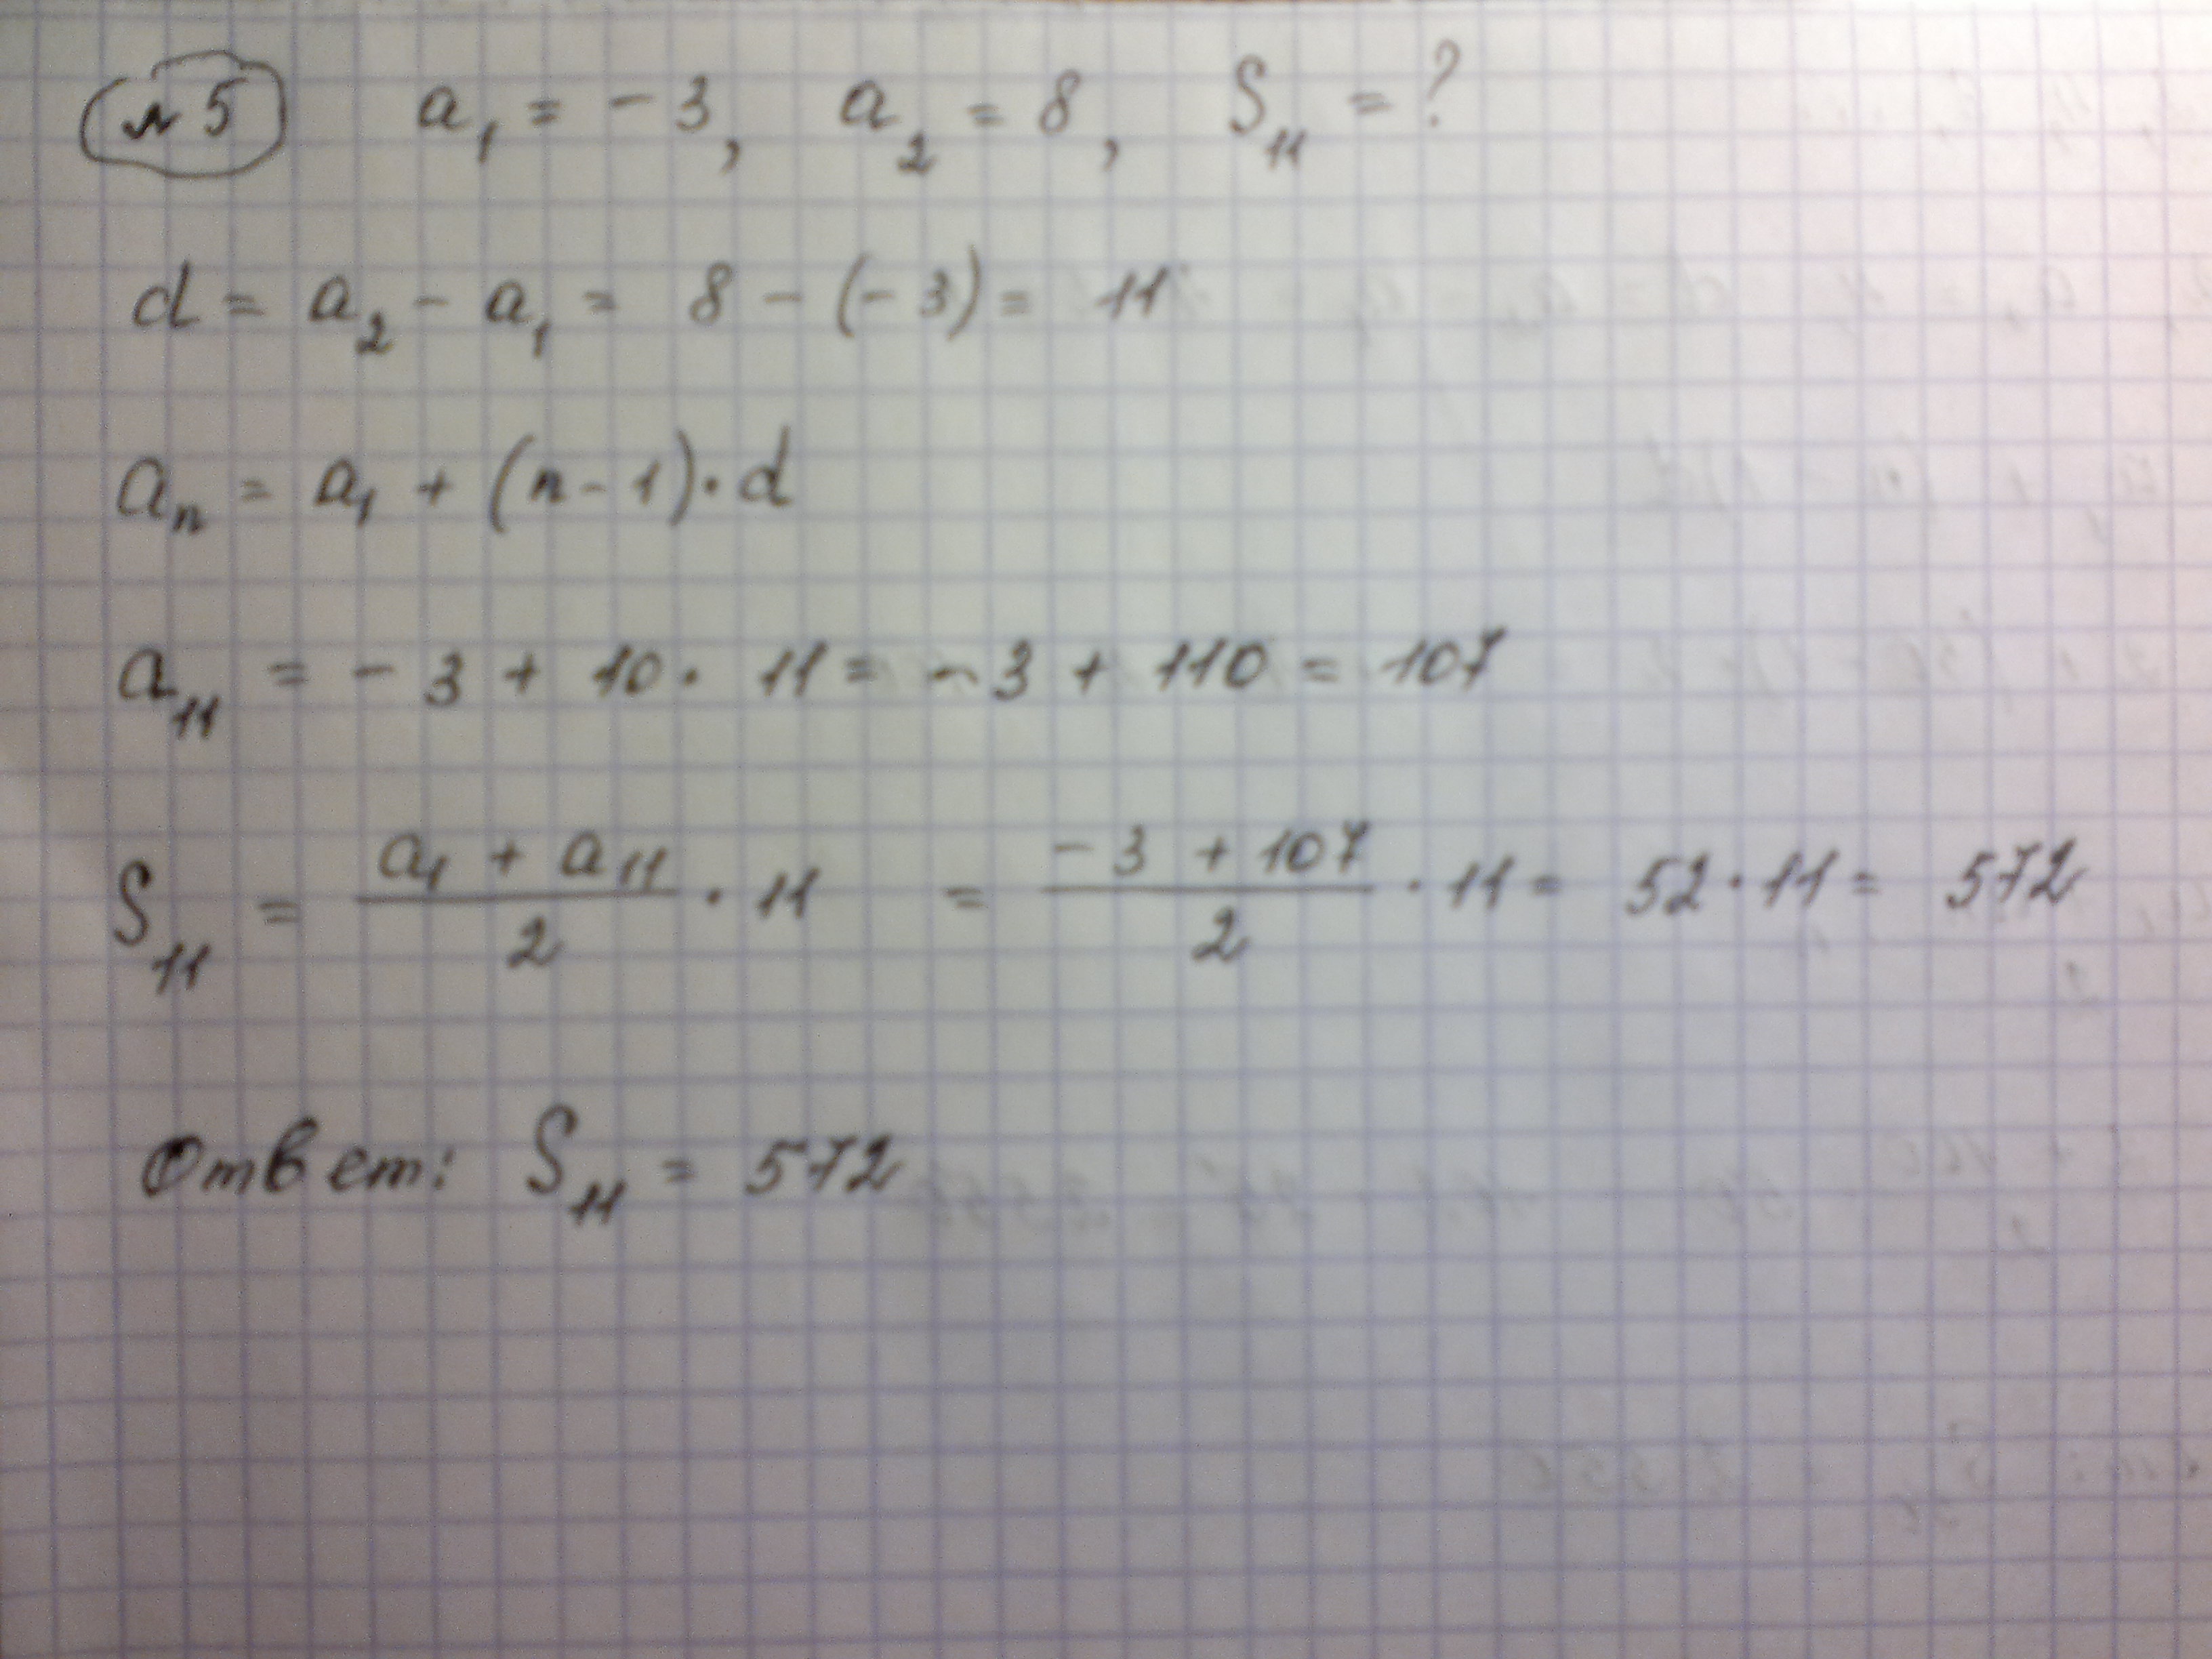 №5 a₁ = -3, a₂ = 8, S₁₁ = ?
d = a₂ - a₁ = 8 - (-3) = 11
aₙ = a₁ + (n-1)·d
a₁₁ = -3 + 10·11 = -3 + 110 = 107
S₁₁ = (a₁ + a₁₁)/2 · 11 = (-3 + 107)/2 · 11 = 52·11 = 572
Ответ: S₁₁ = 572